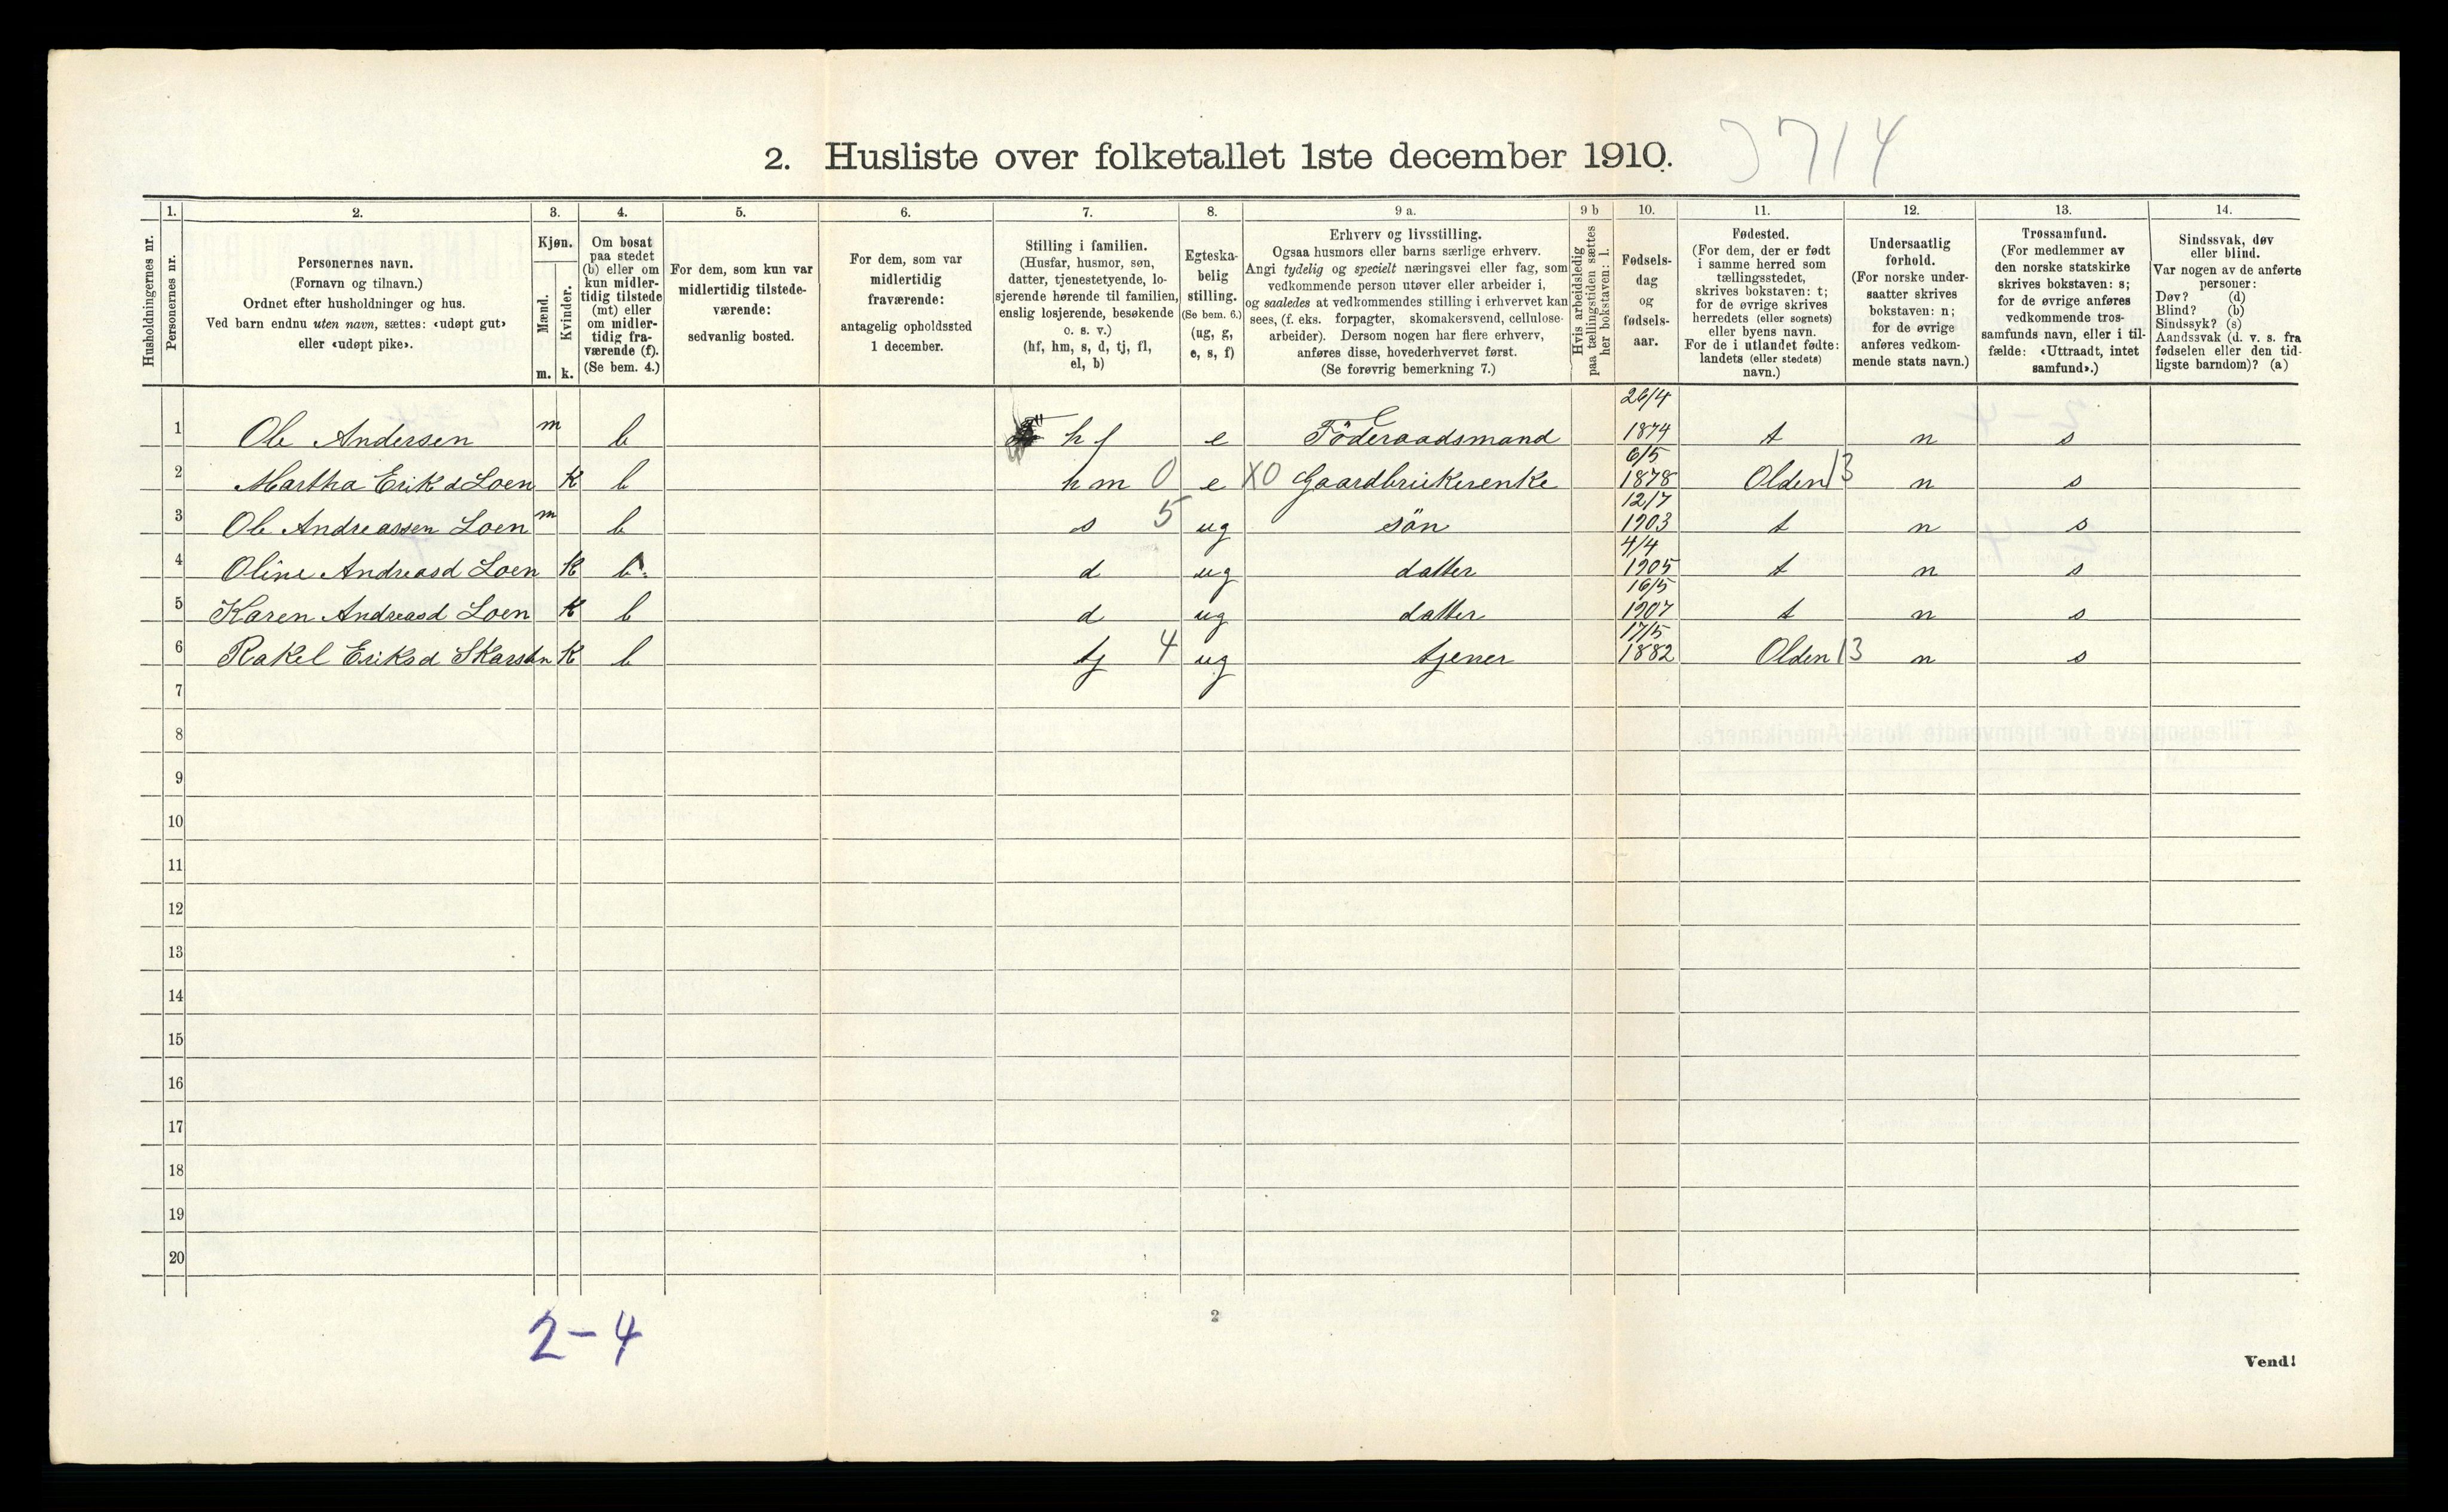 2. Husliste over folketallet 1ste december 1910.
3714
Husholdningernes nr.
1.
Personernes nr.
2.
Personernes navn.
(Fornavn og tilnavn.)
Ordnet efter husholdninger og hus.
Ved barn endnu uten navn, sættes: «udøpt gut»
eller «udøpt pike».
3.
Kjøn.
Mænd.
Kvinder.
m. k.
4.
Om bosat
paa stedet
(b) eller om
kun midler-
tidig tilstede
(mt) eller
om midler-
tidig fra-
værende (f).
(Se bem. 4.)
5.
For dem, som kun var
midlertidig tilstede-
værende:
sedvanlig bosted.
6.
For dem, som var
midlertidig
fraværende:
antagelig opholdssted
1 december.
7.
Stilling i familien.
(Husfar, husmor, søn,
datter, tjenestetyende, lo-
sjerende hørende til familien,
enslig losjerende, besøkende
o. s. v.)
(hf, hm, s, d, tj, fl,
el, b)
8.
Egteska-
belig
stilling.
(Se bem. 6.)
(ug, g,
e, s, f)
9 a.
Erhverv og livsstilling.
Ogsaa husmors eller barns særlige erhverv.
Angi tydelig og specielt næringsvei eller fag, som
vedkommende person utøver eller arbeider i,
og saaledes at vedkommendes stilling i erhvervet kan
sees, (f. eks. forpagter, skomakersvend, cellulose-
arbeider). Dersom nogen har flere erhverv,
anføres disse, hovederhvervet først.
(Se forøvrig bemerkning 7.)
9 b
Hvis arbeidsledig
paa tællingstiden sættes
her bokstaven: l.
10.
Fødsels-
dag
og
fødsels-
aar.
11.
Fødested.
(For dem, der er født
i samme herred som
tællingsstedet,
skrives bokstaven: t;
for de øvrige skrives
herredets (eller sognets)
eller byens navn.
For de i utlandet fødte:
landets (eller stedets)
navn.)
12.
Undersaatlig
forhold.
(For norske under-
saatter skrives
bokstaven: n;
for de øvrige
anføres vedkom-
mende stats navn.)
13.
Trossamfund.
(For medlemmer av
den norske statskirke
skrives bokstaven: s;
for de øvrige anføres
vedkommende tros-
samfunds navn, eller i til-
fælde: «Uttraadt, intet
samfund».)
14.
Sindssvak, døv
eller blind.
Var nogen av de anførte
personer:
Døv? (d)
Blind? (b)
Sindssyk? (s)
Aandssvak (d. v. s. fra
fødselen eller den tid-
ligste barndom)? (a)
1 Ole Andersen m b hf e Föderaadsmand 26/4 1874 t n s
2 Martha Erikd Loen K b hm 0 e X0 Gaardbrukerenke 6/5 1878 Olden 13 n s
3 Ole Andreassen Loen m b s 5 ug sön 12/7 1903 t n s
4 Oline Andreasd Loen K b d ug datter 4/4 1905 t n s
5 Karen Andreasd Loen K b d ug datter 16/5 1907 t n s
6 Rakel Eriksd Skarsten K b tj 4 ug tjener 17/5 1882 Olden 13 n s
7
8
9
10
11
12
13
14
15
16
17
18
19
20
2-4
2
Vend!